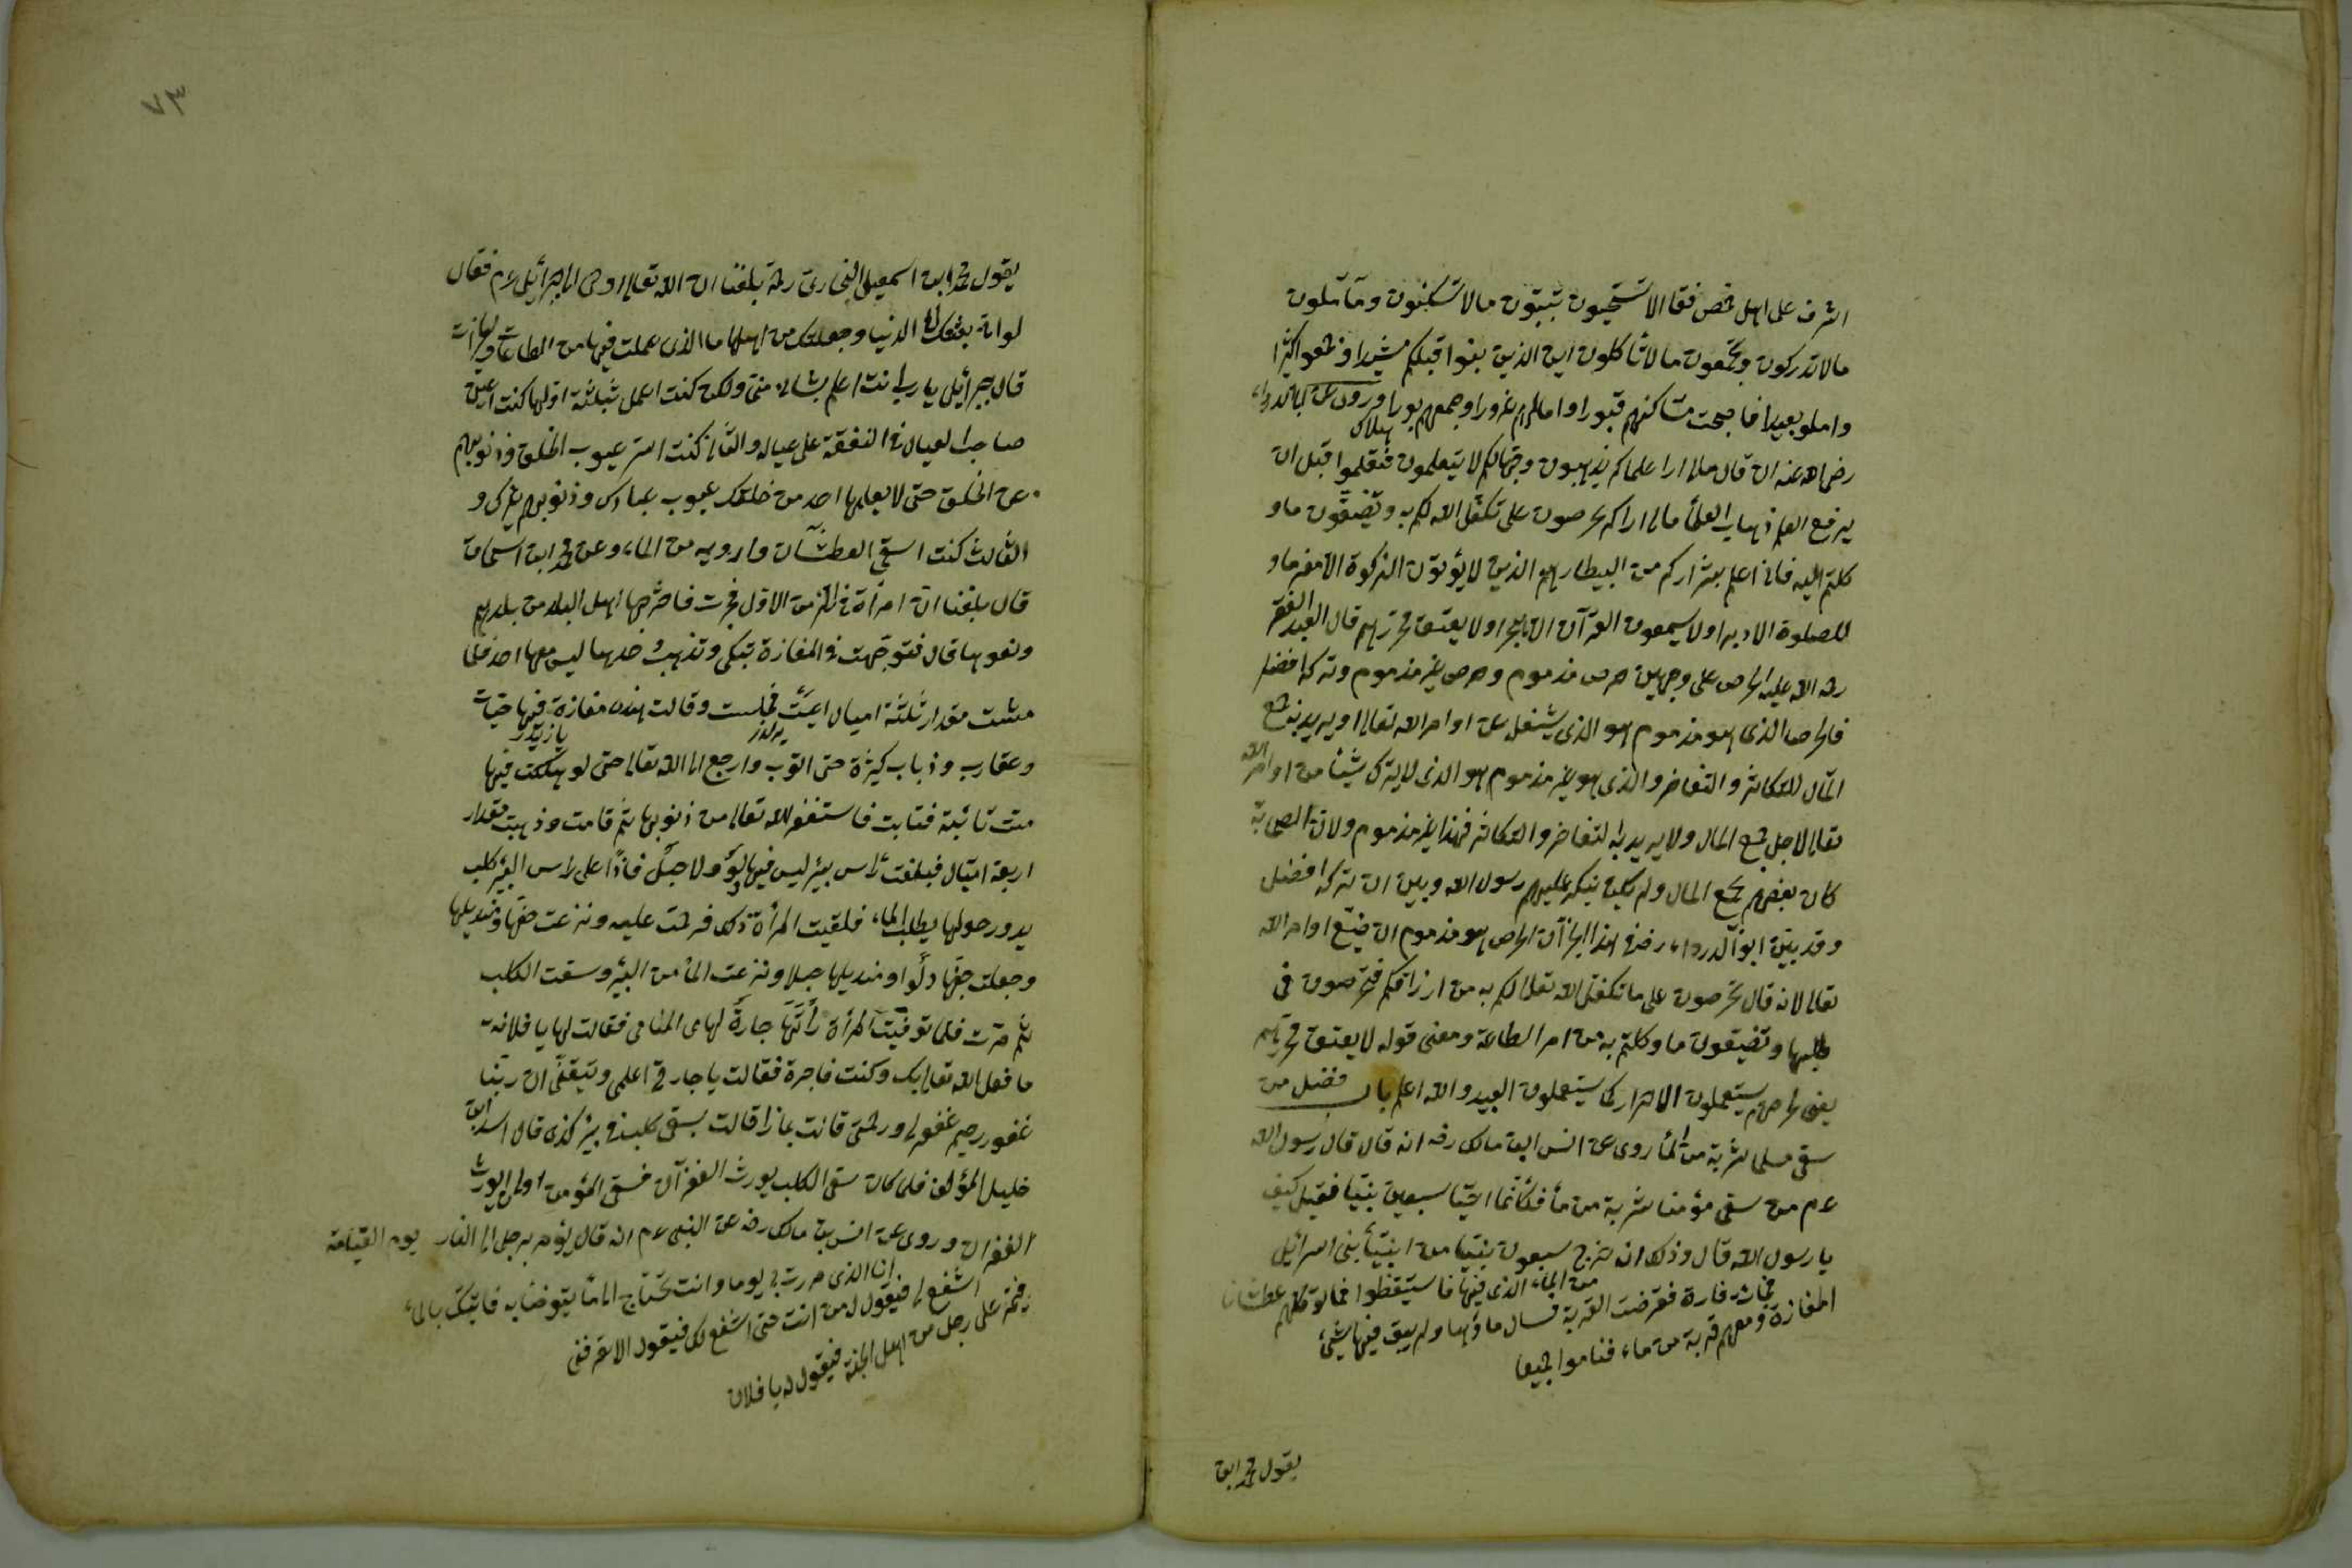 اشرف على اهل حمص فقال الا تستحيون تبنون مالا تسكنون وتأملون
مالا تدركون وتجمعون مالا تأكلون ان الذين بنوا قبلكم مشيدا وجمعوا كثيرا
واملو بعيدا فاصبحت مساكنهم قبورا وامالهم غرورا وجمعهم بورا وروى عن ابى الدرداء
هلاك
رضى الله عنه ان قال مالى ارا علماكم يذهبون وجهالكم لا يتعلمون فتعلموا قبل ان
يرفع العلم ذهاب العلمأ مالى اراكم تحرصون على تكفل الله لكم به وتضيعون ما و
كلتم اليه فانى اعلم بشراركم من البيطار هم الذين لا يؤتون الزكوة الا مغرما و
للصلوة الا دبرا ولا يسمعون القرآن الا هجرا ولا يعتق محررهم قال العبد الفقير
رحمة الله عليه الحرص على وجهين حرص مذموم وحرص غير مذموم وتركه افضل
فالحرص الذى هو مذموم هو الذى يشغل عن اوامر الله تعالى او يريد بجمع
المال للتكاثر والتفاخر والذى هو غير مذموم هو الذى لا يترك شيئا من اوامر الله
تعالى لاجل جمع المال ولا يريد به التفاخر والتكاثر فهذا غير مذموم ولان الصحابة
كان بعضهم يجمع المال ولم يكن ينكر عليهم رسول الله وبين ان تركه افضل
وقد بين ابو الدرداء رضه فى هذا الخبر آن الحرص هو مذموم ان ضيع اوامر الله
تعالى لانه قال تحرصون على ما تكفل الله تعالى لكم به من ارزاقكم فتحرصون فى
طلبها وتضيعون ما وكلتم به من امر الطاعة ومعنى قوله لا يعتق محررهم
يعنى لحرصهم يستعملون الاحرار كما يستعملون العبيد والله اعلم باب فضل من
سقى مسلما شربة من المأ روى عن انس ابن مالك رضه انه قال قال رسول الله
عم من سقى مؤمنا شربة من مأ فكأنما احيا سبعين نبيا فقيل كيف
يا رسول الله قال وذلك انه خرج سبعون نبيا من انبيأ بنى اسرائيل
المفازة ومعهم قربة من ماء فناموا جميعا
فجائت فارة فقرضت القربة فسال ماؤها ولم يبق فيها شئ
من الماء الذى فيها فاستيقظوا فماتوا كلهم عطشانا
يقول محمد ابن
٧٣
يقول محمد ابن اسمعيل البخارى رحمة بلغنا ان الله تعالى اوحى الى جبرائيل عم فقال
لو انا بعثتك الى الدنيا وجعلتك من اهلها ما الذى عملت فيها من الطاعات والخيرات
قال جبرائيل يا رب انت اعلم بشانى منى ولكن كنت اعمل ثبلثة اولها كنت اعين
صاحب العيال فى النفقة على عياله والثانى كنت استر عيوب الخلق وذنوبهم
عن الخلق حتى لا يعلمها احد من خلقك عيوب عبادك وذنوبهم غيرك و
الثالث كنت اسقى العطشان وارويه من الماء وعن محمد ابن اسحاق
قال بلغنا ان امرأة فى الزمن الاول فجرت فاخرجها اهل البلد من بلدهم
ونفوها قال فتوجهت فى المفازة تبكى وتذهب وحدها ليس معها احد فلما
مشت مقدار ثلثة اميال اعيت فجلست وقالت هذه مفازة فيها حيات
وعقارب وذباب كثيرة حتى اتوب وارجع الى الله تعالى حتى لو هلكت فيها
مت تائبة فتابت فاستغفر الله تعالى من ذنوبها ثم قامت وذهبت مقدار
اربعة اميال فبلغت رأس بئر ليس فيها دلو ولا حبل فاذا على راس البئر كلب
يدور حولها يطلب الماء فلقيت المرأة ذلك فرحمت عليه ونزعت خفها ومنديلها
وجعلت خفها دلوا ومنديلها حبلا ونزعت المأ من البئر وسقت الكلب
ثم مرت فلما توفيت المرأة رأتها جارة لها فى المنام فقالت لها يا فلانة
ما فعل الله تعالى بك وكنت فاجرة فقالت يا جارتى اعلمى وتيقنى ان ربنا
غفور رحيم غفر لى ورحمنى قالت بماذا قالت بسقى كلب فى بئر كذى قال اسد ابن
خليل المؤلف فلما كان سقى الكلب يورث الغفرآن فسقى المؤمن اولى ان يورث
الغفران وروى عن انس بن مالك رضه عن النبى عم انه قال يؤمر برجل الى النار يوم القيامة
فيمر على رجل من اهل الجنة فيقول له يا فلان
اشفع لى فيقول له من انت حتى اشفع لك فيقول الا تعرفنى
انا الذى مررت بى يوما وانت تحتاج الى مأ يتوضأ به فاتيتك بالمأ